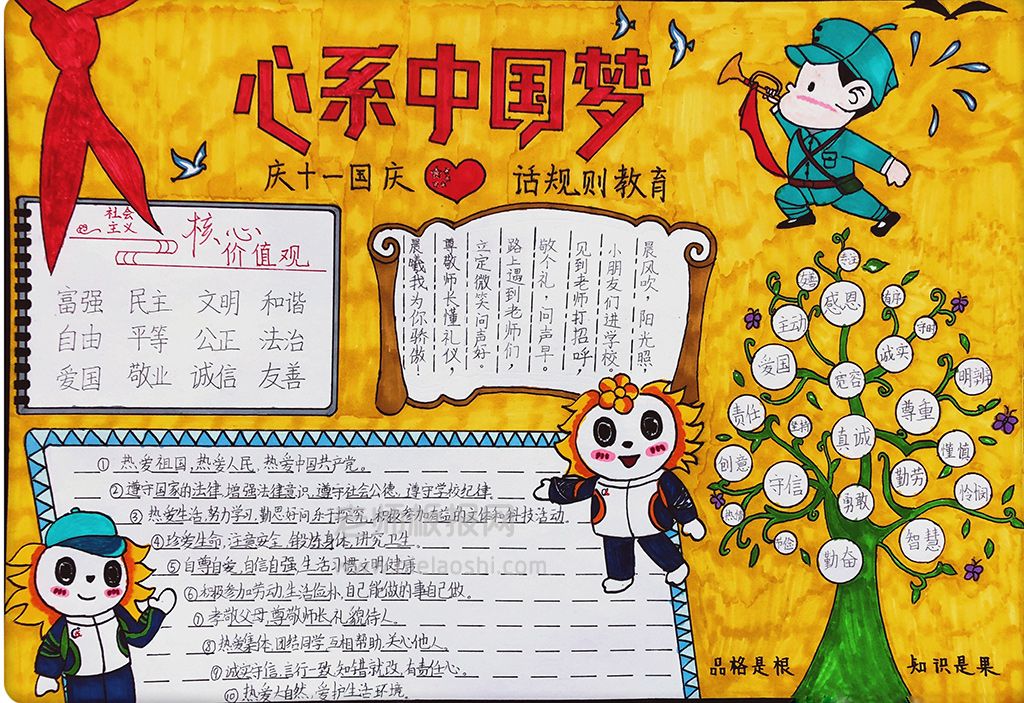 心系中国梦
庆十一国庆
话规则教育
社会
主义
核心
价值观
富强 民主 文明 和谐
自由 平等 公正 法治
爱国 敬业 诚信 友善
晨风吹,阳光照
小朋友们进学校。
见到老师打招呼,
敬个礼,问声早。
路上遇到老师们,
立定微笑问声好。
尊敬师长懂礼仪,
晨曦我为你骄傲!
①热爱祖国,热爱人民,热爱中国共产党。
②遵守国家的法律,增强法律意识,遵守社会公德,遵守学校纪律。
③热爱生活,努力学习,勤思好问,乐于探究,积极参加有益的文体科技活动。
④珍爱生命,注意安全,锻炼身体,讲究卫生。
⑤自尊自爱,自信自强,生活习惯文明健康。
⑥积极参加劳动,生活俭朴,自己能做的事自己做。
⑦孝敬父母,尊敬师长,礼貌待人。
⑧热爱集体,团结同学,互相帮助,关心他人。
⑨诚实守信,言行一致,知错就改,有责任心。
⑩热爱大自然,爱护生活环境。
专注
友善
感恩
主动
守时
诚实
爱国
宽容
明辨
责任
坚持
尊重
真诚
谨慎
创意
守信
勤劳
怜悯
热情
勇敢
节俭
勤奋
智慧
品格是根
知识是果